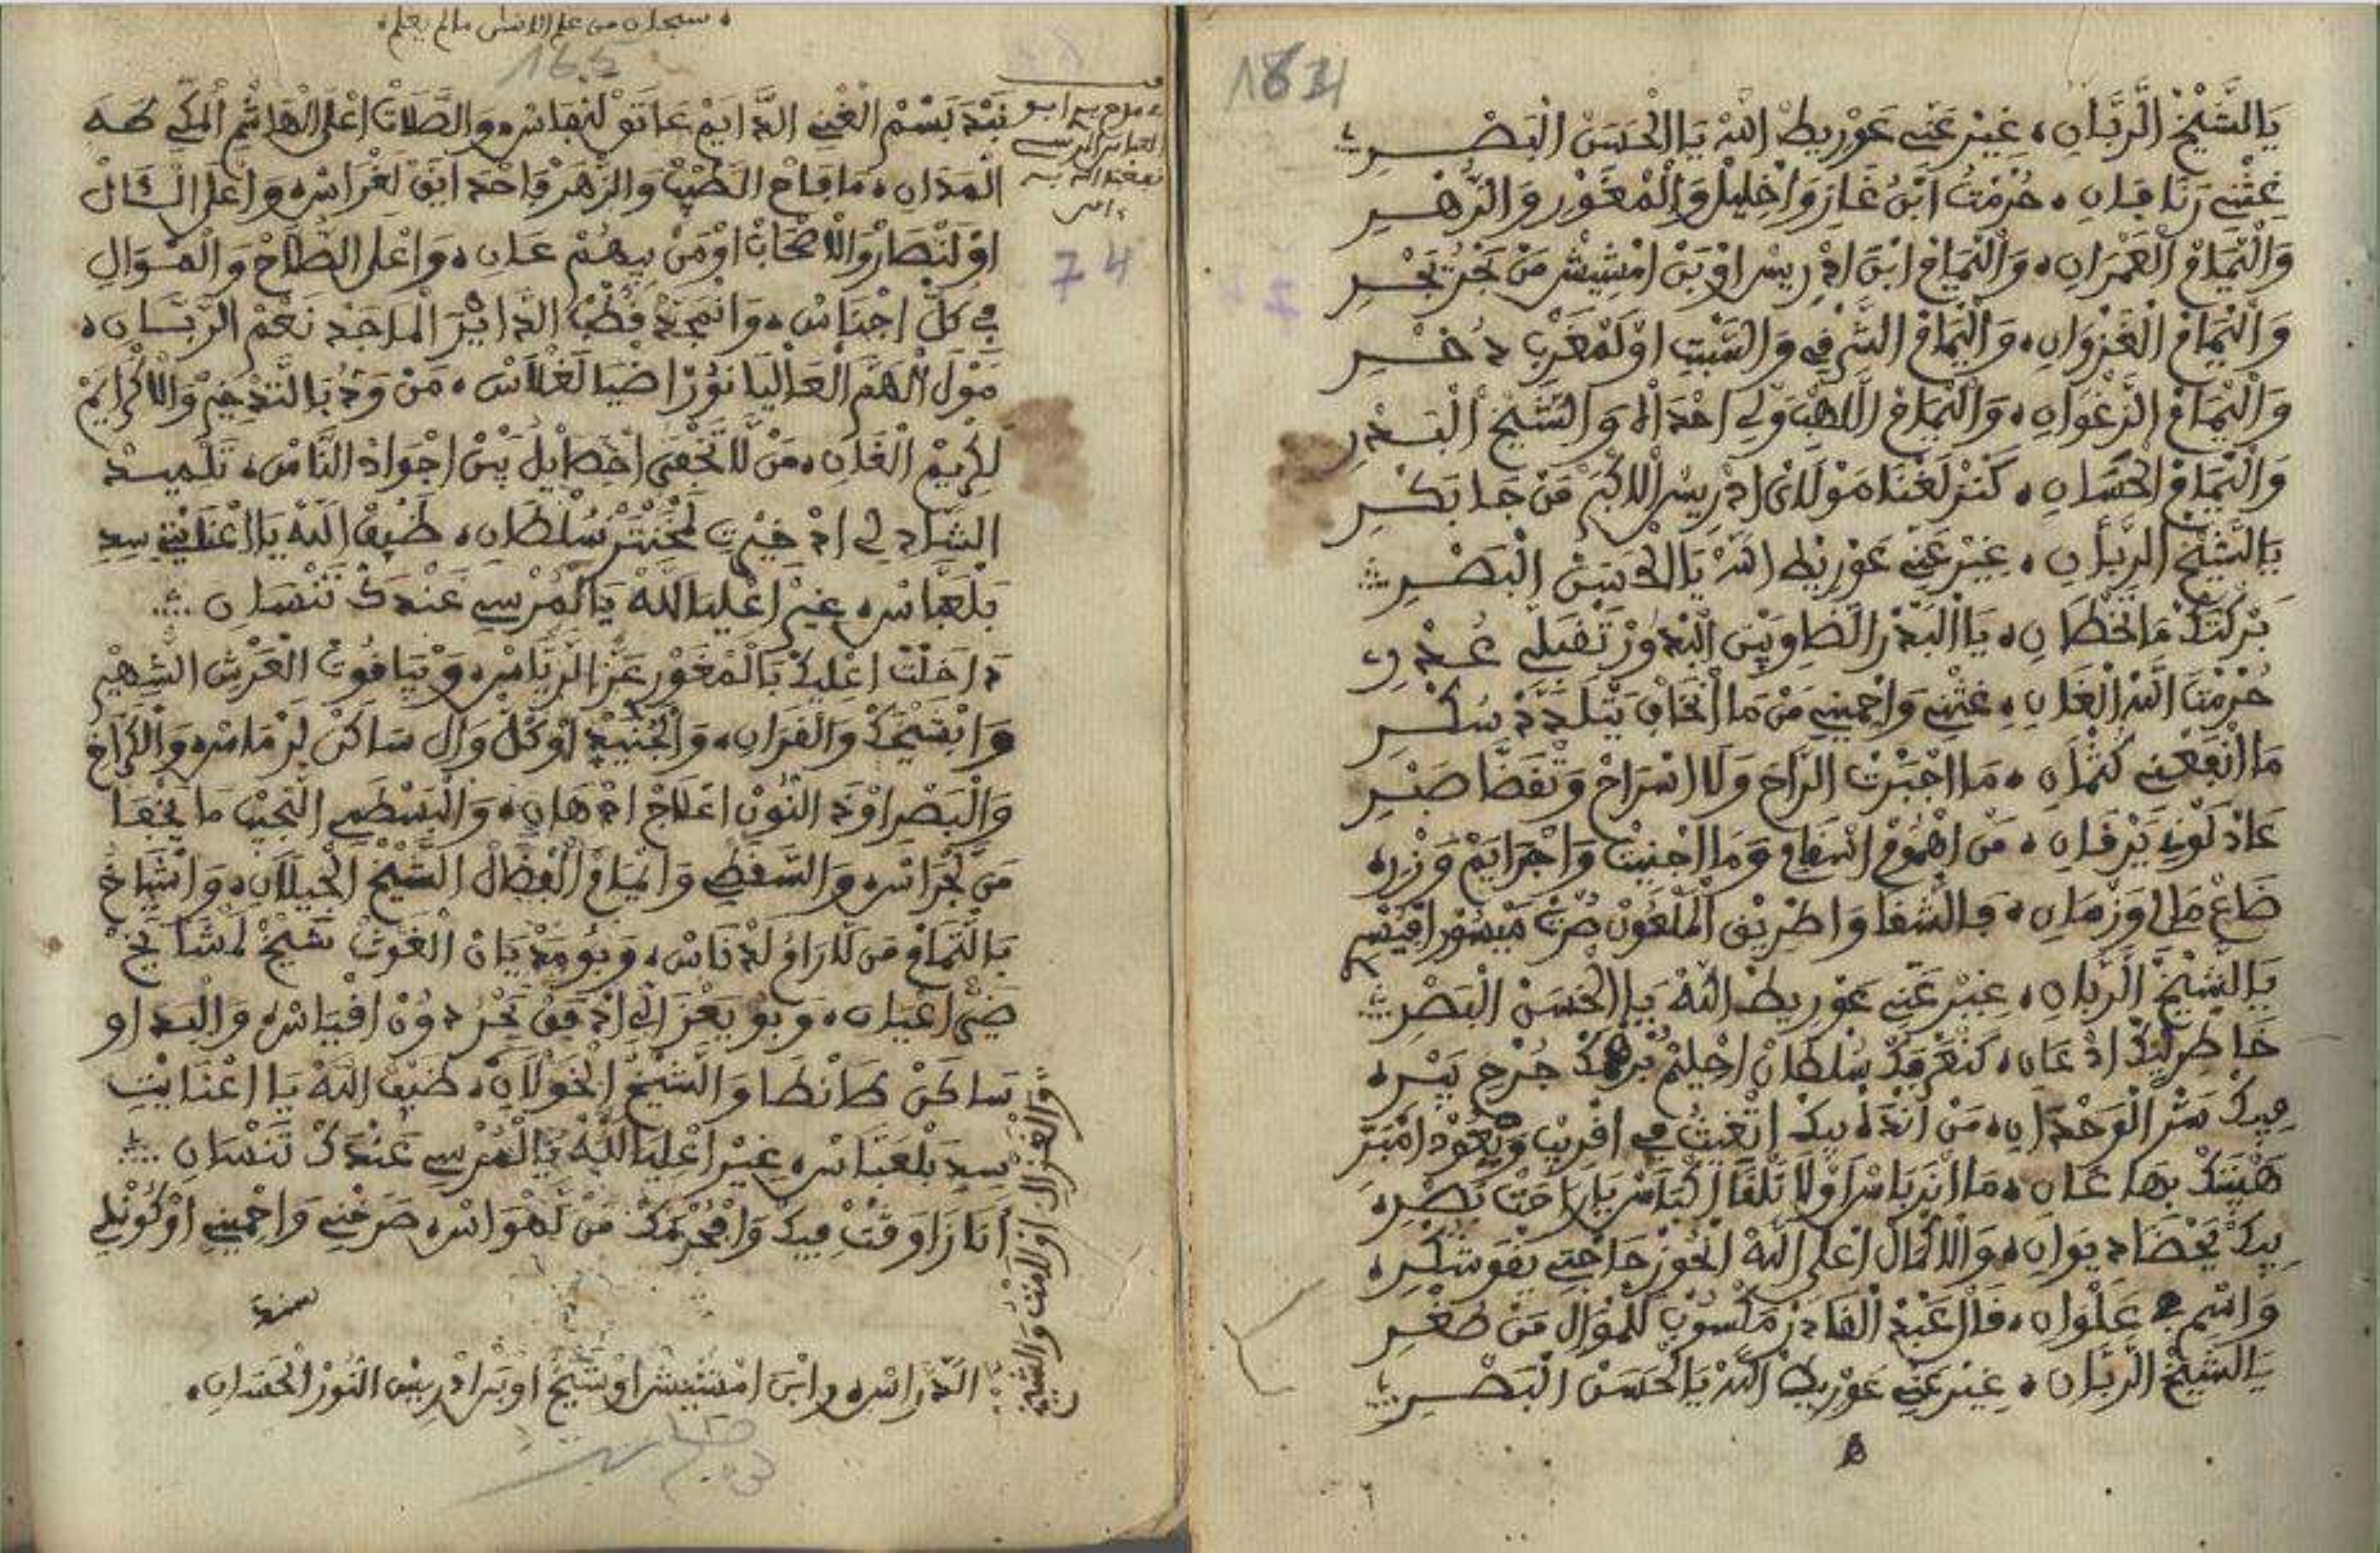 1634
يَا الشَّيْخْ الرَّبَّانِ، غِيرْ عَنِّي عَوْرِيطْ اللهْ يَا الْحَسَنْ الْبَصْرِ
غِثْنِي رَنَا فَانِ، حُرْمْتْ ابْنْ غَازِ وَاخْلِيلْ وَالْمَغَوْرِ وَالزُّهْرِ
وَالْيَمَامْ الْعَمْرَانِ، وَالْيَمَامْ ابْنْ ادْرِيسْ اوْ بَنْ امْشِيشْ مَنْ بَحْرُ نَجْرِ
وَالْيَمَامْ الْغَزْوَانِ، وَالْيَمَامْ الشَّرْفِي وَالسَّبْتِ اوْ لَمْغَرْبْ دُخْرِ
وَالْيَمَامْ الزَّغْوَانِ، وَالْيَمَامْ اللهْبْ وَلِي احْدَاهْ وَالشَّيْخْ الْبَدْرِ
وَالْيَمَامْ الْحَسَانِ، كَنْزْ لَغْنَا مَوْلَايْ ادْرِيسْ الاكْبَرْ مَنْ جَا بَكْرِ
يَا الشَّيْخْ الرَّبَّانِ، غِيرْ عَنِّي عَوْرِيطْ اللهْ يَا الْحَسَنْ الْبَصْرِ
بَرْكْتَكْ مَا تَخْطَانِ، يَا الْبَدْرْ الضَاوِ بِينْ الْبْدُورْ تَقْبَلِي عُدْرِ
حُرْمْتْ اللهْ الْغَانِ، غِثْنِي وَاحْمِينِي مَنْ مَا انْخَافْ يَتْلَدَّدْ سُكْرِ
مَا انْفَعْنِي كَتْمَانِ، مَا اجْبَرْتْ الرَّاحَ وَلَا اسْرَاحْ وَتْقَضَّا صَبْرِ
عَادْ لَوْنِي يَرْقَانِ، مَنْ اهْمُومْ اسْقَامِ وَمَا اجْنِيتْ وَاجْرَايَمْ وَزْرِ
ضَاعْ مَالِ وَزْمَانِ، فَالشْقَا وَاطْرِيقْ الْمَلْعُونْ صُرْتْ مَيْسُورْ
يَا الشَّيْخْ الرَّبَّانِ، غِيرْ عَنِّي عَوْرِيطْ اللهْ يَا الْحَسَنْ الْبَصْرِ
خَاطِرِ لِيكْ ادْعَانِ، كَنَعْرْفَكْ سُلْطَانْ احْلِيمْ جُرْحِ يَبْرِ
فِيكْ سَرْ الْوَحْدَانِ، مَنْ انْدَهْ بِيكْ اتْغِيثُ فِي اقْرِيبْ وَيْعُودْ
هَيْبْتَكْ بِهَا عَانِ، مَا انْرَ بَاسْ اوْلَا نَلْقَا يَا رَاحْتْ بَصْرِ
بِيكْ يَحْضَا دِيوَانِ، وَالاكْمَالْ اعْلَى اللهْ انْحُوزْ حَاجْتِي يَقْوَ شُكْرِ
وَاسْمِ فِي عَلْوَانِ، قَالْ عَبْدْ الْقَادَرْ مَكْسُوبْ لَلْمَوَالِ مَنْ صُغْرِ
يَا الشَّيْخْ الرَّبَّانِ، غِيرْ عَنِّي عَوْرِيطْ اللهْ يَا الْحَسَنْ الْبَصْرِ
سبحان من علم الانسان ما لم يعلم
165
ابو العباس المرسي نفعنا الله به
74
نَبْدَ بَسْمْ الْغْنِي الدَّايَمْ عَاتَوْ لَنْفَاسْ، وَالصَّلَاتْ اعْلَى الْهَاشْمِ الْمَكِّي طَهَ
الْمَدَانِ، مَا فَاحْ الطَّيْبْ وَالزْهَرْ فَاحْدَايَقْ لَغْرَاسْ، وَاعْلَى الَالْ
اوْ لَنْصَارْ وَالاصْحَابْ اوْمَنْ بِيهُمْ عَانِ، وَاعْلَى الصُّلَّاحْ وَالْمَوَالِ
فِي كَلّْ اجْنَاسْ، وَانْمَجَّدْ قُطْبْ الدَّايْرَ الْمَاجَدْ نَعْمْ الرَّبَّانِ،
مَوْلْ الْهَمَّ الْعَالْيَا نُورُ اضْيَا لَغْلَاسْ، مَنْ وَدُّ بَالتَّقْدِيمْ وَالاكْرَايَمْ
لَكْرِيمْ الْغَانِ، مَنْ لَا تَخْفَى اخْصَايْلُ بِينْ اجْوَادْ النَّاسْ، تَلْمِيدْ
الشَّادْلِي ادْخِيرْتِ سُلْطَانِ، ضَيْفْ اللهْ يَا اعْنَايْتِي سِيدِ
بَلْعَبَّاسْ، غِيرْ اعْلِيَا للهْ يَا الْمُرْسِي عَنْدَكْ تَنْسَانِ
دَاخَلْتْ اعْلِيكْ بَالْمَغَوْرِ عَزّْ الرَّيَّاسْ، وَبْيَاقُوتْ الْعَرْشْ الشْهِيرْ
وَابْشَيْخَكْ وَالْقَرَانِ، وَالْجُنَيْدْ اوْ كُلّْ وَالِ سَاكَنْ لَرْمَاسْ، وَالْكَرْخِ
وَالْبَصْرِ اوْ دَ النُّونْ اعْلَاجْ ادْهَانِ، وَالْبَسْطَمِي النْجِيبْ مَا يَخْفَا
مَنْ لَجْرَاسْ، وَالسَّقْطِي وَامَّامْ الْفْضَالْ الشَّيْخْ الْجِيلَانِ، وَاشْيَاخْ
بَالتَّمَامْ مَنْ لَلَّرَاوْ لَدْنَاسْ، وَبُومَدْيَانْ الْغَوْثْ شَيْخْ لَمْشَايَخْ
ضَيّْ اعْيَانِ، وَبُو يَعْزَ الِّي ادْفَقْ بَحْرُ دُونْ اقْيَاسْ، وَالْبَدَاوِ
سَاكَنْ طَانْطَا وَالشَّيْخْ الْخَوْلَانِ، ضَيْفْ اللهْ يَا اعْنَايْتِ
سِيدِ بَلْعَبَّاسْ، غِيرْ اعْلِيَا للهْ يَا الْمُرْسِي عَنْدَكْ تَنْسَانِ
أَنَا زَاوَقْتْ فِيكْ وَافْحُرْمَكْ مَنْ لَهْوَاسْ، صَرَّخْنِي وَاحْمِينِي اوْكُونْلِي
وَالْغَزَالِ وَالشَّيْخْ
الدَّرَّاسْ، وابَنْ امْشِيشْ اوْ شَيْخُ اوْ بَنْ ادْرِيسْ النُّورْ الْحَسَانِ،